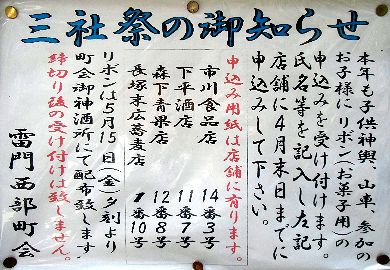 三社祭の御知らせ
本年も子供神輿、山車、参加の
お子様にリボン（お菓子用）の
申込みを受け付けます。
氏名等を記入し左記
店舗に4月末日までに
申込みして下さい。
申込み用紙は店舗に有ります。
市川食品店 14番3号
下平酒店 11番7号
森下青果店 12番8号
長塚末広蕎麦店 1番10号
リボンは5月15日（金）夕刻より
町会御神酒所にて配布致します
締切り後の受け付けは致しません。
雷門西部町会